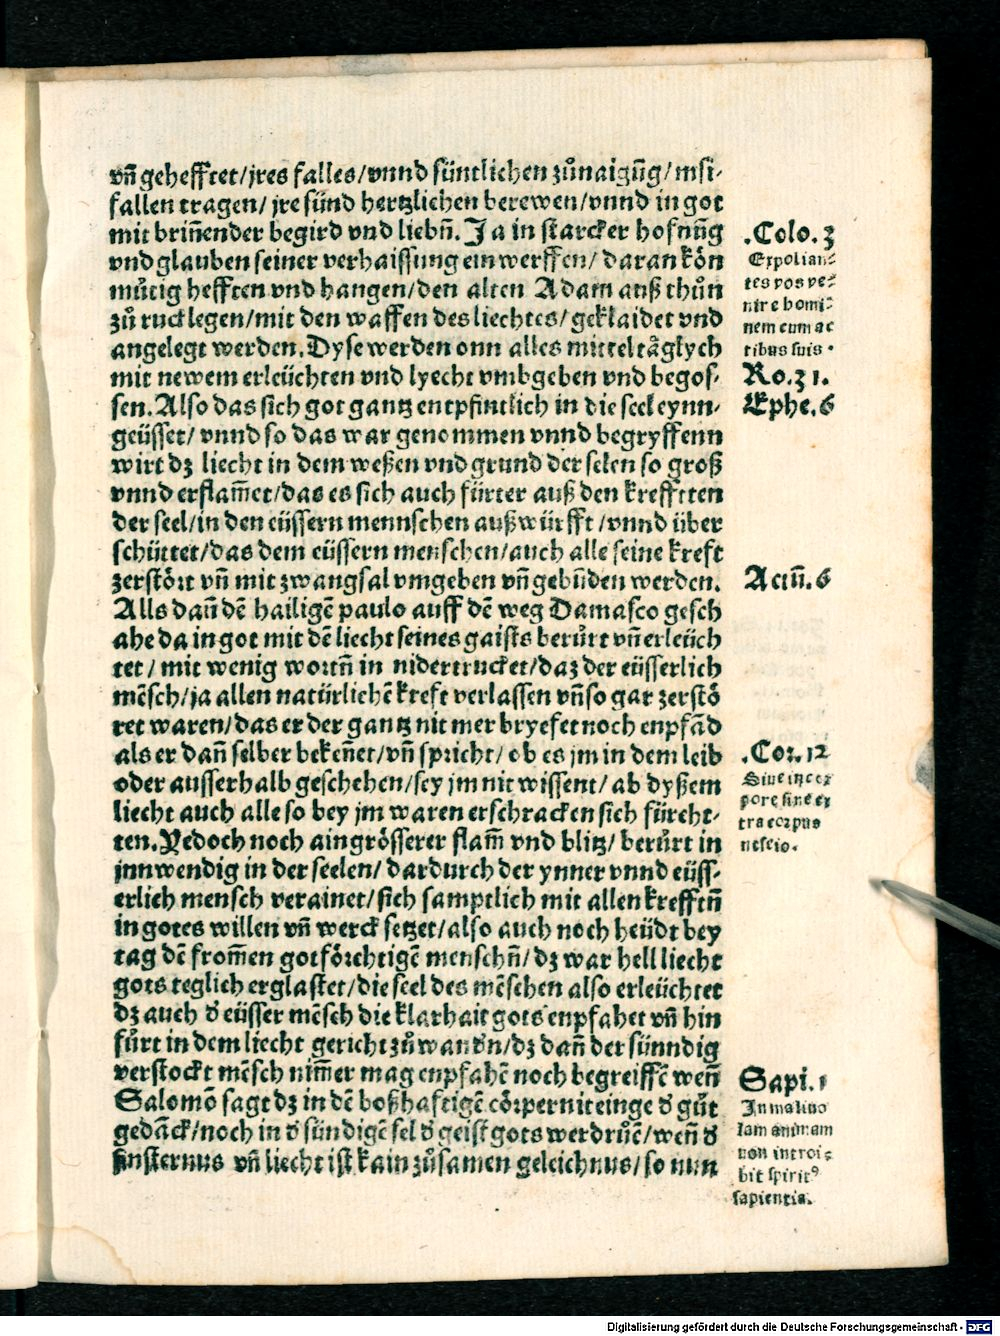 vn̄ gehefftet/jres falles/vnnd süntlichen zůnaigūg/mſi-
fallen tragen/jre sünd hertzlichen berewen/vnnd in got
mit briñender begird vnd liebñ. Ja in starcker hofnūg
vnd glauben seiner verhaissung einwerffen/daran kön
můtig hefften vnd hangen/den alten Adam auß thůn
zů ruck legen/mit den waffen des liechtes/geklaidet vnd
angelegt werden. Dyse werden onn alles mittel täglych
mit newem erleüchten vnd lyecht vmbgeben vnd begos-
sen. Also das sich got gantz entpfintlich in die seel eynn-
geüsset/vnnd so das war genommen vnnd begryffenn
wirt dz liecht in dem weßen vnd grund der selen so groß
vnnd erflam̄et/das es sich auch fürter auß den krefftten
der seel/in den eüssern mennschen außwürfft/vnnd über
schüttet/das dem eüssern menschen/auch alle seine kreft
zerstört vn̄ mit zwangsal vmgeben vn̄ gebūden werden.
Alls dañ dē hailigē paulo auff dē weg Damasco gesch
ahe da in got mit dē liecht seines gaists berůrt vn̄ erleüch
tet/mit wenig wortñ in nidertrucket/daz der eüsserlich
mēsch/ja allen natürlichē kreft verlassen vn̄ so gar zerstö
ret waren/das er der gantz nit mer bryefet noch enpfād
als er dañ selber bekeñet/vn̄ spricht/ob es jm in dem leib
oder ausserhalb geschehen/sey jm nit wissent/ab dyßem
liecht auch alle so bey jm waren erschracken sich fürcht-
ten. Yedoch noch ain grösserer flam̄ vnd blitz/berůrt in
jnnwendig in der seelen/dardurch der ynner vnnd eüss-
erlich mensch verainet/sich samptlich mit allen krefftñ
in gotes willen vn̄ werck setzet/also auch noch heüdt bey
tag dē from̄en gotförchtigē menschñ/dz war hell liecht
gots teglich erglastet/die seel des mēschen also erleüchtet
dz auch d̕ eüsser mēsch die klarhait gots enpfahet vn̄ hin
fürt in dem liecht gericht zůwand̕n/dz dañ der sünndig
verstockt mēsch nim̄er mag enpfahē noch begreiffē weñ
Salomō sagt dz in dē boßhaftigē cörper nit einge d̕ gůt
gedāck/noch in d̕ sündigē sel d̕ geist gots werd růē/weñ d̕
finsternus vn̄ liecht ist kain zůsamen geleichnus/so nun
.Colo. 3
Expolian-
tes vos ve-
tere homi-
nem cum ac
tibus suis.
Ro. 31.
Ephe. 6
Actū. 6
.Cor. 12
Siue in cor
pore siue ex
tra corpus
nescio.
Sapi. 1
In maliuo
lam animam
non introi-
bit spiritꝰ
sapientia.
Digitalisierung gefördert durch die Deutsche Forschungsgemeinschaft - DFG